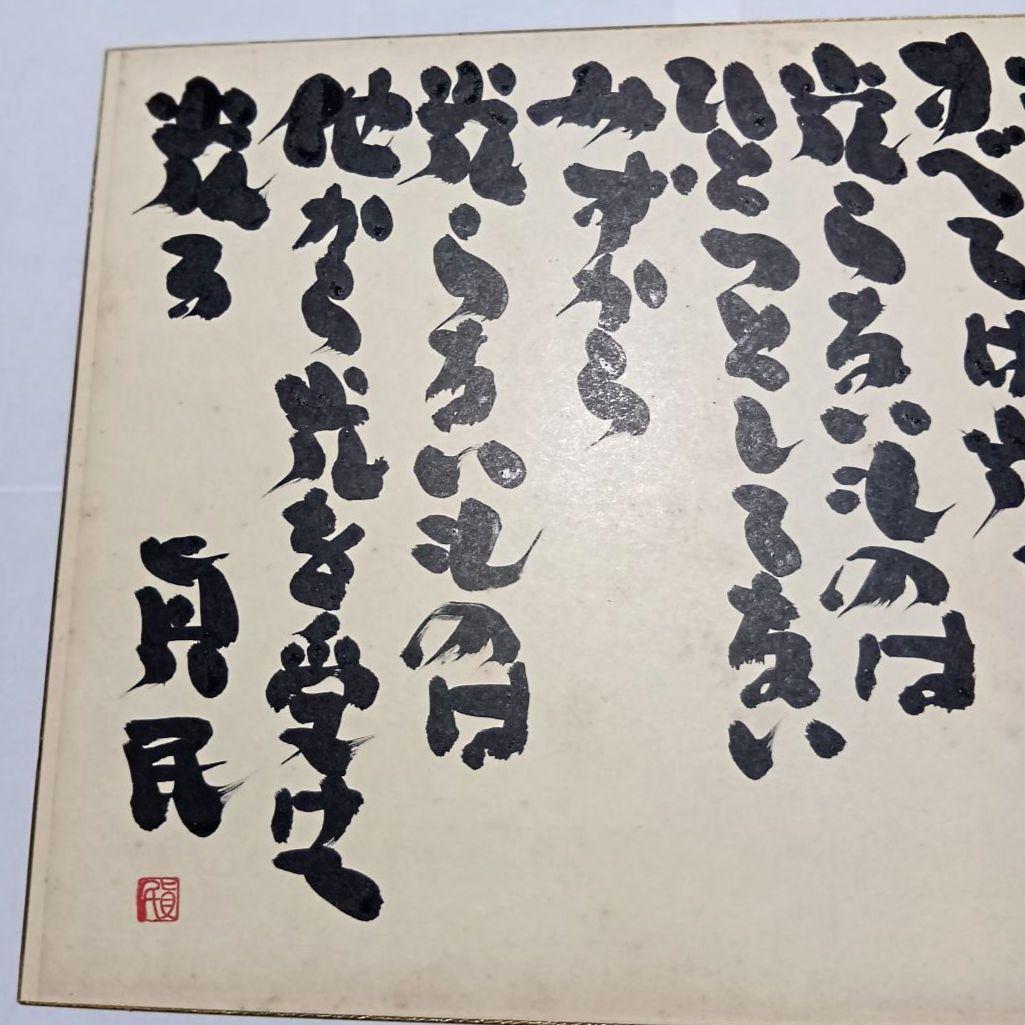 すべては光
光らないものは
ひとつとしてない
みずから
光らないものは
他から光を受けて
光る
眞民